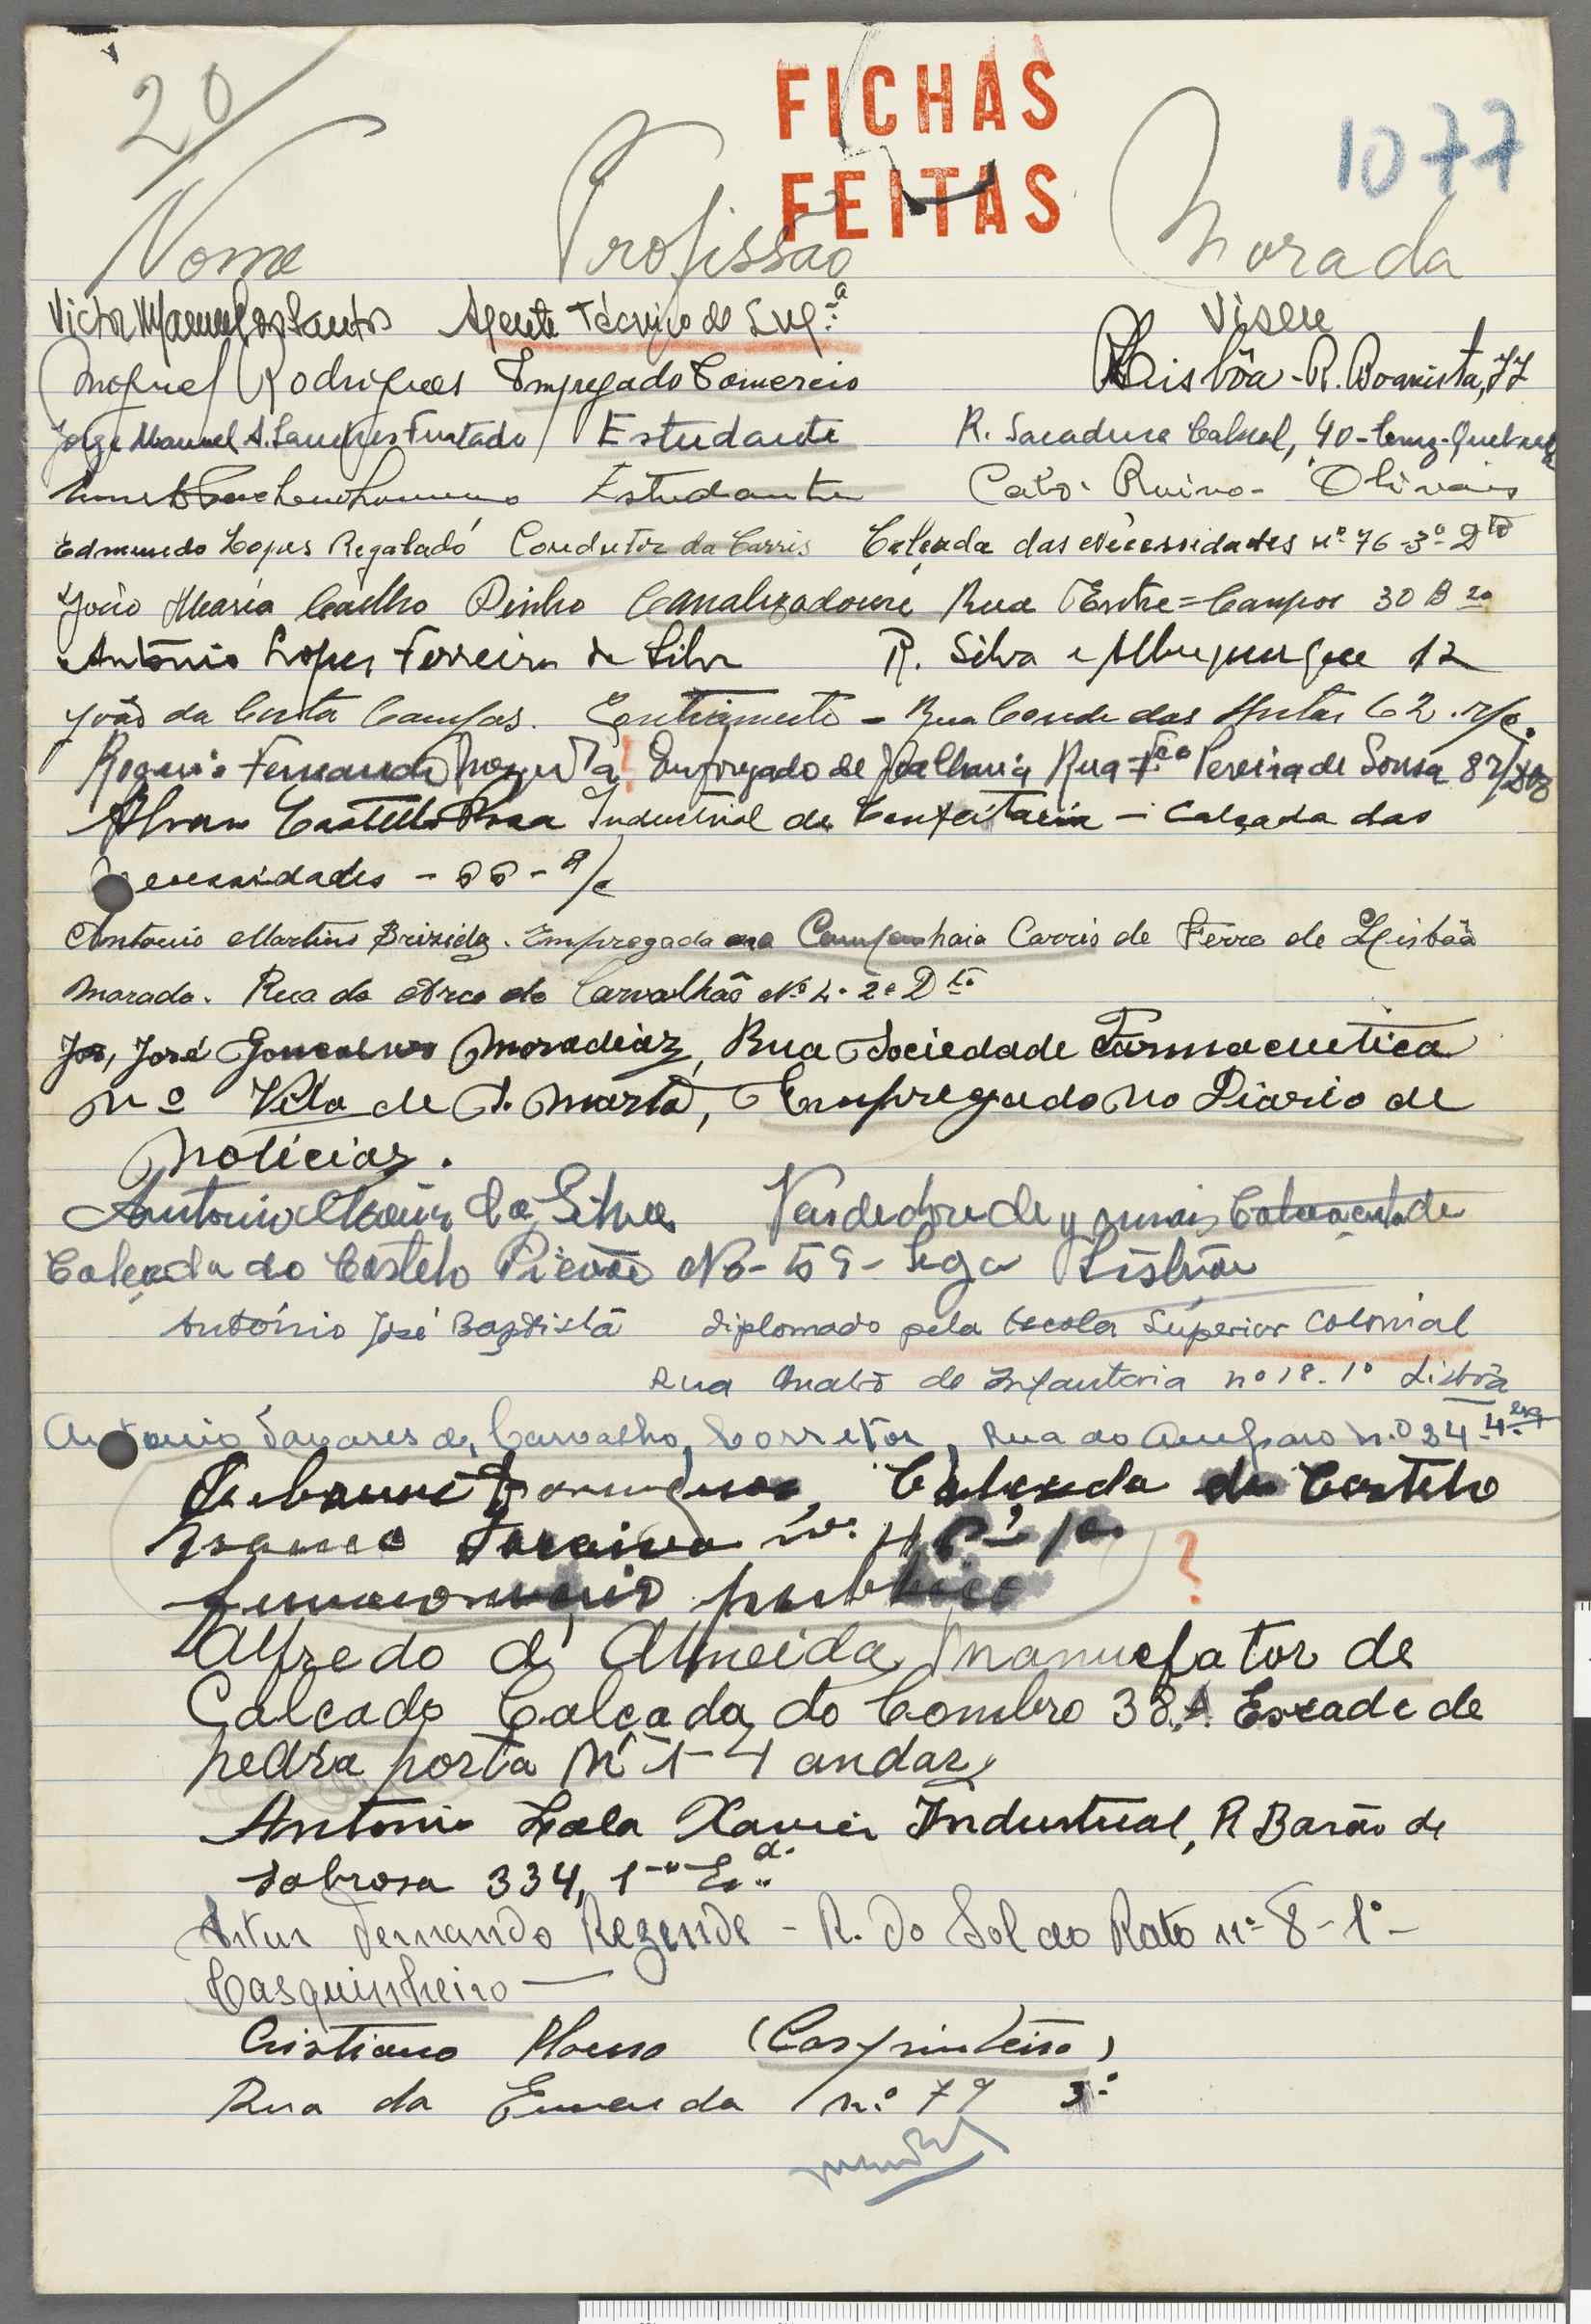 20
FICHAS
FEITAS
1077
Nome Profissão Morada
Victor Manuel dos Santos Agente Técnico de Eng.ª Viseu
Miguel Rodrigues Empregado Comercio Lisbôa - R. Boavista, 77
Jorge Manuel A. Sanches Furtado Estudante R. Sacadura Cabral, 40 - Cruz-Quebrada
Estudante Ruivo - Olivais
Edmundo Lopes Regalado Condutor da Carris Calçada das Necessidades nº 76-3º Dtº
João Maria Coelho Pinho Canalizadore Rua Entre=Campos 30 B
António Lopes Ferreira da Silva R. Silva e Albuquerque 12
João da Costa Campos. - Rua Conde das Antas 62. r/c.
Rogerio Fernando ? Empregado de Rua F.co Pereira de Sousa
Alvaro Castello Industrial de Confeitaria - Calçada das
Necessidades - r/c
Antonio Martins Brizida. Empregado na Companhaia Carris de Ferro de Lisboa
Morada. Rua do Arco do Carvalhão Nº 2º Dto
José Gonçalves Moradiaz, Rua Sociedade Farmaceutica
nº Vila de S. Marta, Empregado no Diario de
Noticias.
Antonio da Silva Vendedor de
Calçada do Castelo Picão No - 59 - Lisbõa
António José Baptista diplomado pela Escola Superior Colonial
Rua de Infantaria nº 18. 1º Lisbõa
Antonio Tavares de Carvalho, Corretor, Rua do Amparo n.o 34 4º esq
Domingues, Calçada do Castelo
branco Saraiva
funcionario publico ?
Alfredo d'Almeida, Manuefator de
Calcado Calçada do Combro 38.A. Escade de
pedra porta Nº 1 - 4 andar,
Antonio Lola Xavier Industrial, R Barão de
Sabrosa 334, 1º
Artur Fernando Rezende - R. do Sol ao Rato nº 8 - 1º -
Casquinheiro
Cristiano (Carpinteiro)
Rua da Emenda n.º 79 3º